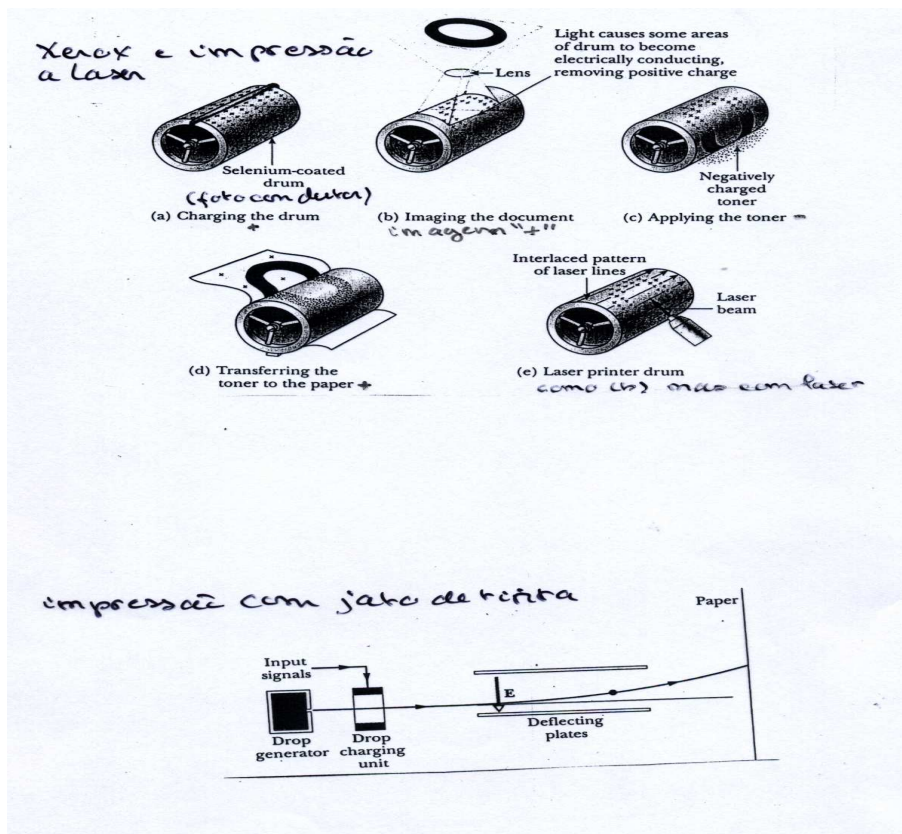 Xerox e impressão
a laser
Light causes some areas
of drum to become
electrically conducting,
removing positive charge
Lens
Selenium-coated
drum
(fotocondutor)
Negatively
charged
toner
(a) Charging the drum
+
(b) Imaging the document
imagem "+"
(c) Applying the toner -
Interlaced pattern
of laser lines
Laser
beam
(d) Transferring the
toner to the paper +
(e) Laser printer drum
como (b) mas com laser
impressão com jato de tinta
Paper
Input
signals
E
Drop
generator
Drop
charging
unit
Deflecting
plates